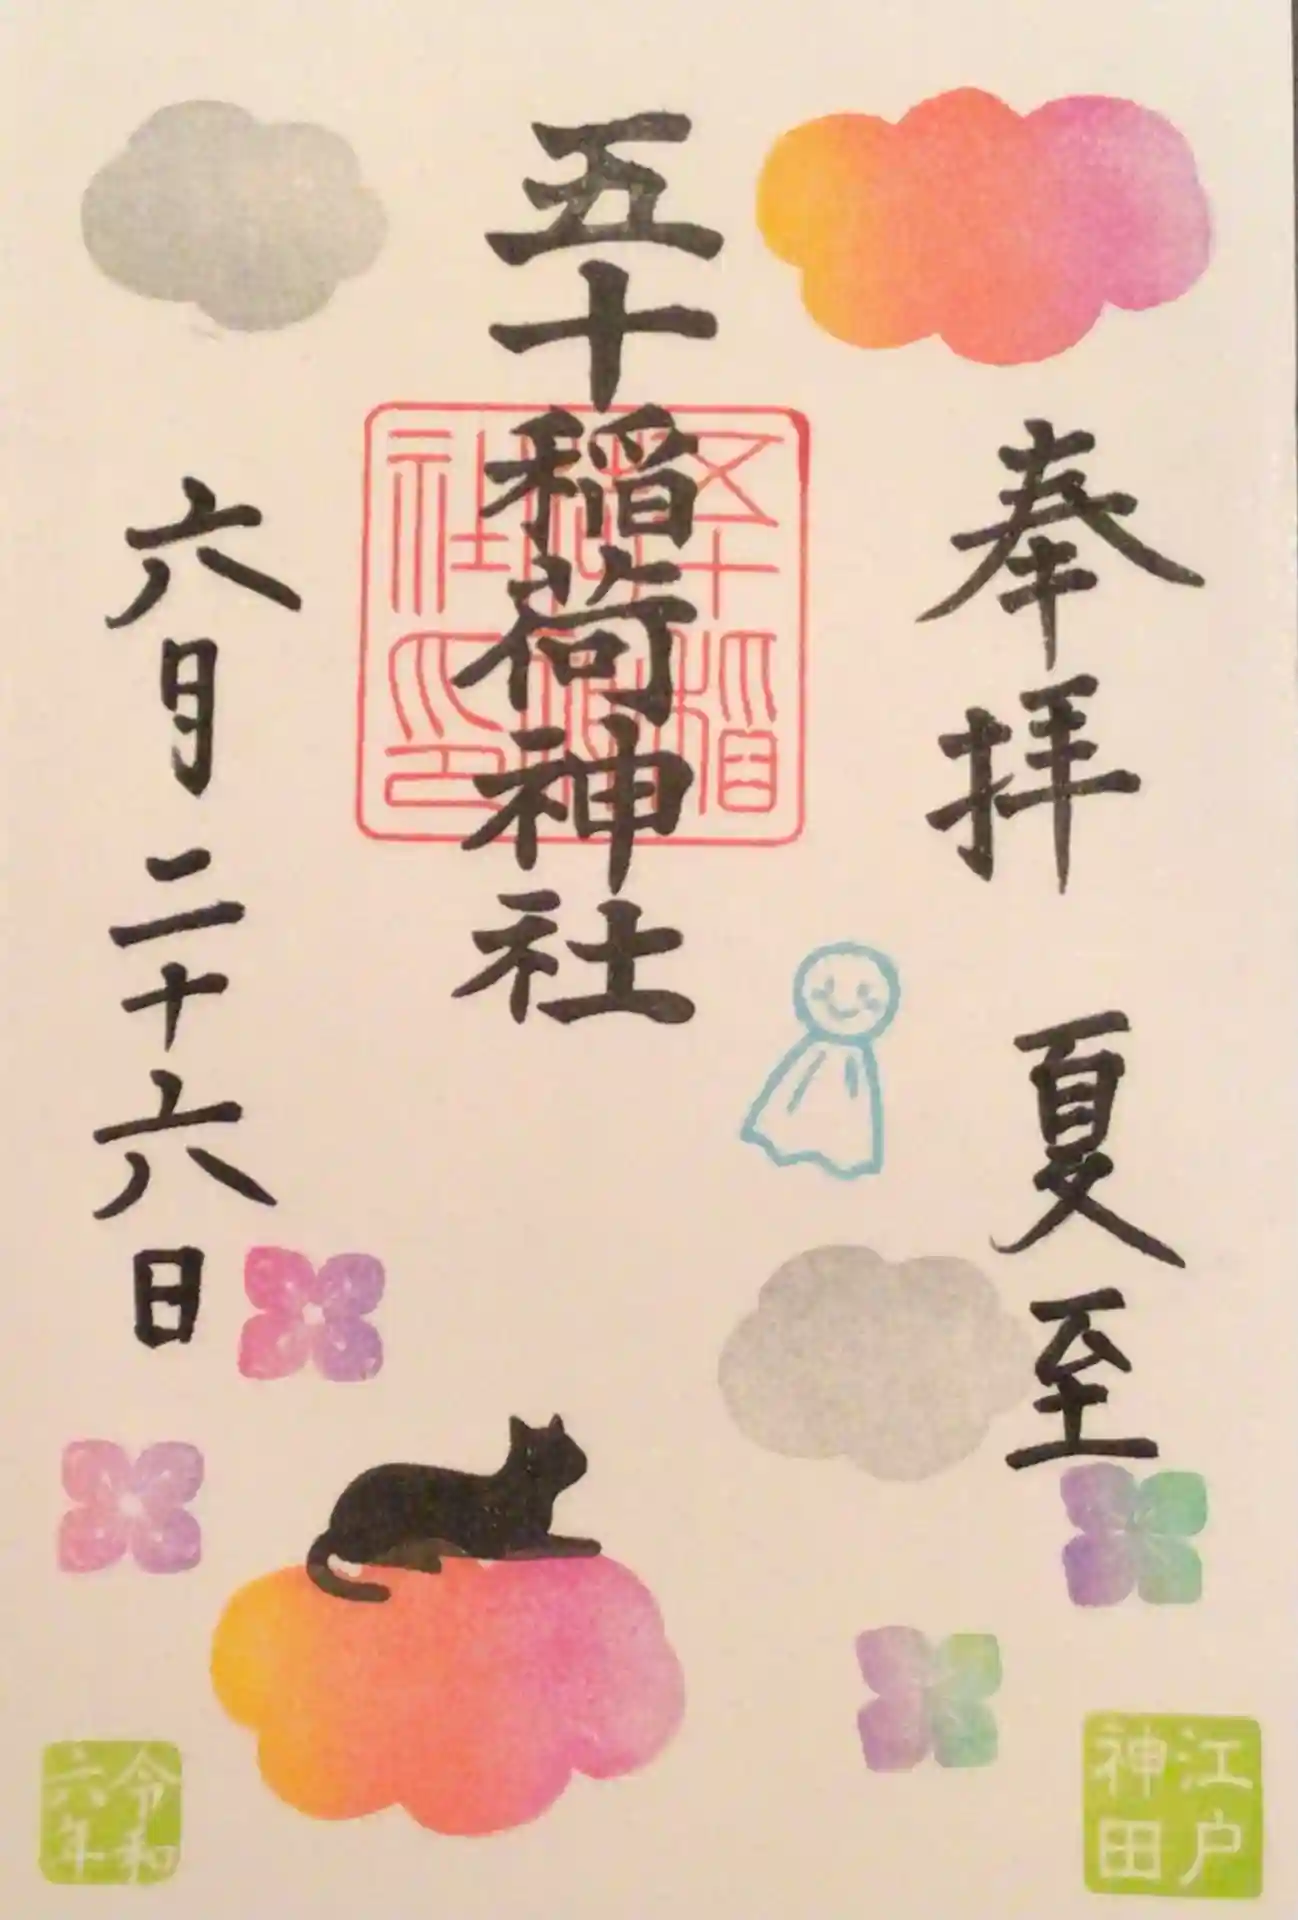 奉拝 夏至
五十稲荷神社
五十稲荷神社印
六月二十六日
江戸神田
令和六年